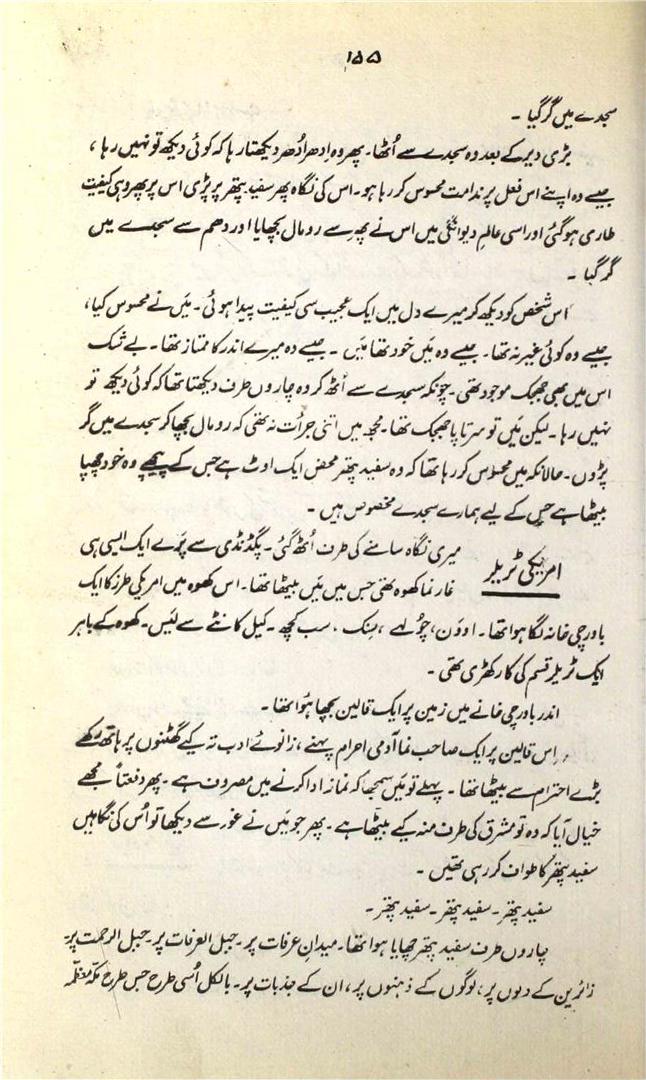 ۱۵۵
سجدے میں گر گیا ۔
بڑی دیر کے بعد وہ سجدے سے اُٹھا۔ پھر وہ اِدھر اُدھر دیکھتا رہا کہ کوئی دیکھ تو نہیں رہا ،
جیسے وہ اپنے اس فعل پر ندامت محسوس کر رہا ہو۔ اس کی نگاہ پھر سفید پتھر پر پڑی اس پر پھر وہی کیفیت
طاری ہو گئی اور اسی عالمِ دیوانگی میں اس نے پھر سے رومال بچھایا اور دھم سے سجدے میں
گر گیا ۔
اس شخص کو دیکھ کر میرے دل میں ایک عجیب سی کیفیت پیدا ہوئی۔ میں نے محسوس کیا،
جیسے وہ کوئی غیر نہ تھا۔ جیسے وہ مَیں خود تھا مَیں ۔ جیسے وہ میرے اندر کا ممتاز تھا۔ بے شک
اس میں بھی جھجک موجود تھی۔ چونکہ سجدے سے اُٹھ کر وہ چاروں طرف دیکھتا تھا کہ کوئی دیکھ تو
نہیں رہا۔ لیکن مَیں تو سرتاپا جھجک تھا۔ مجھ میں اتنی جرأت نہ تھی کہ رومال بچھا کر سجدے میں گر
پڑوں۔ حالانکہ میں محسوس کر رہا تھا کہ وہ سفید پتھر محض ایک اوٹ ہے جس کے پیچھے وہ خود چھپا
بیٹھا ہے جس کے لیے ہمارے سجدے مخصوص ہیں ۔
امریکی ٹریلر
میری نگاہ سامنے کی طرف اُٹھ گئی۔ پگڈنڈی سے پَرے ایک ایسی ہی
غار نما کھوہ تھی جس میں مَیں بیٹھا تھا۔ اس کھوہ میں امریکی طرز کا ایک
باورچی خانہ لگا ہوا تھا۔ اووَن، چُولہے ، سِنک ۔ سب کچھ ۔ کیل کانٹے سے لَیس۔ کھوہ کے باہر
ایک ٹریلر قسم کی کار کھڑی تھی ۔
اندر باورچی خانے میں زمین پر ایک قالین بچھا ہُوا تھا ۔
اس قالین پر ایک صاحب نما آدمی احرام پہنے ، زانوئے ادب تہ کیے گھٹنوں پر ہاتھ رکھے
بڑے احترام سے بیٹھا تھا ۔ پہلے تو مَیں سمجھا کہ نماز ادا کرنے میں مصروف ہے ۔ پھر دفعتاً مجھے
خیال آیا کہ وہ تو مشرق کی طرف منہ کیے بیٹھا ہے۔ پھر جو مَیں نے غور سے دیکھا تو اُس کی نگاہیں
سفید پتھر کا طواف کر رہی تھیں ۔
سفید پتھر ۔ سفید پتھر ۔ سفید پتھر ۔
چاروں طرف سفید پتھر چھایا ہوا تھا۔ میدانِ عرفات پر ۔ جبل العرفات پر۔ جبل الرحمت پر۔
زائرین کے دلوں پر ، لوگوں کے ذہنوں پر ، ان کے جذبات پر ۔ بالکل اُسی طرح جس طرح مکّہ معظّمہ